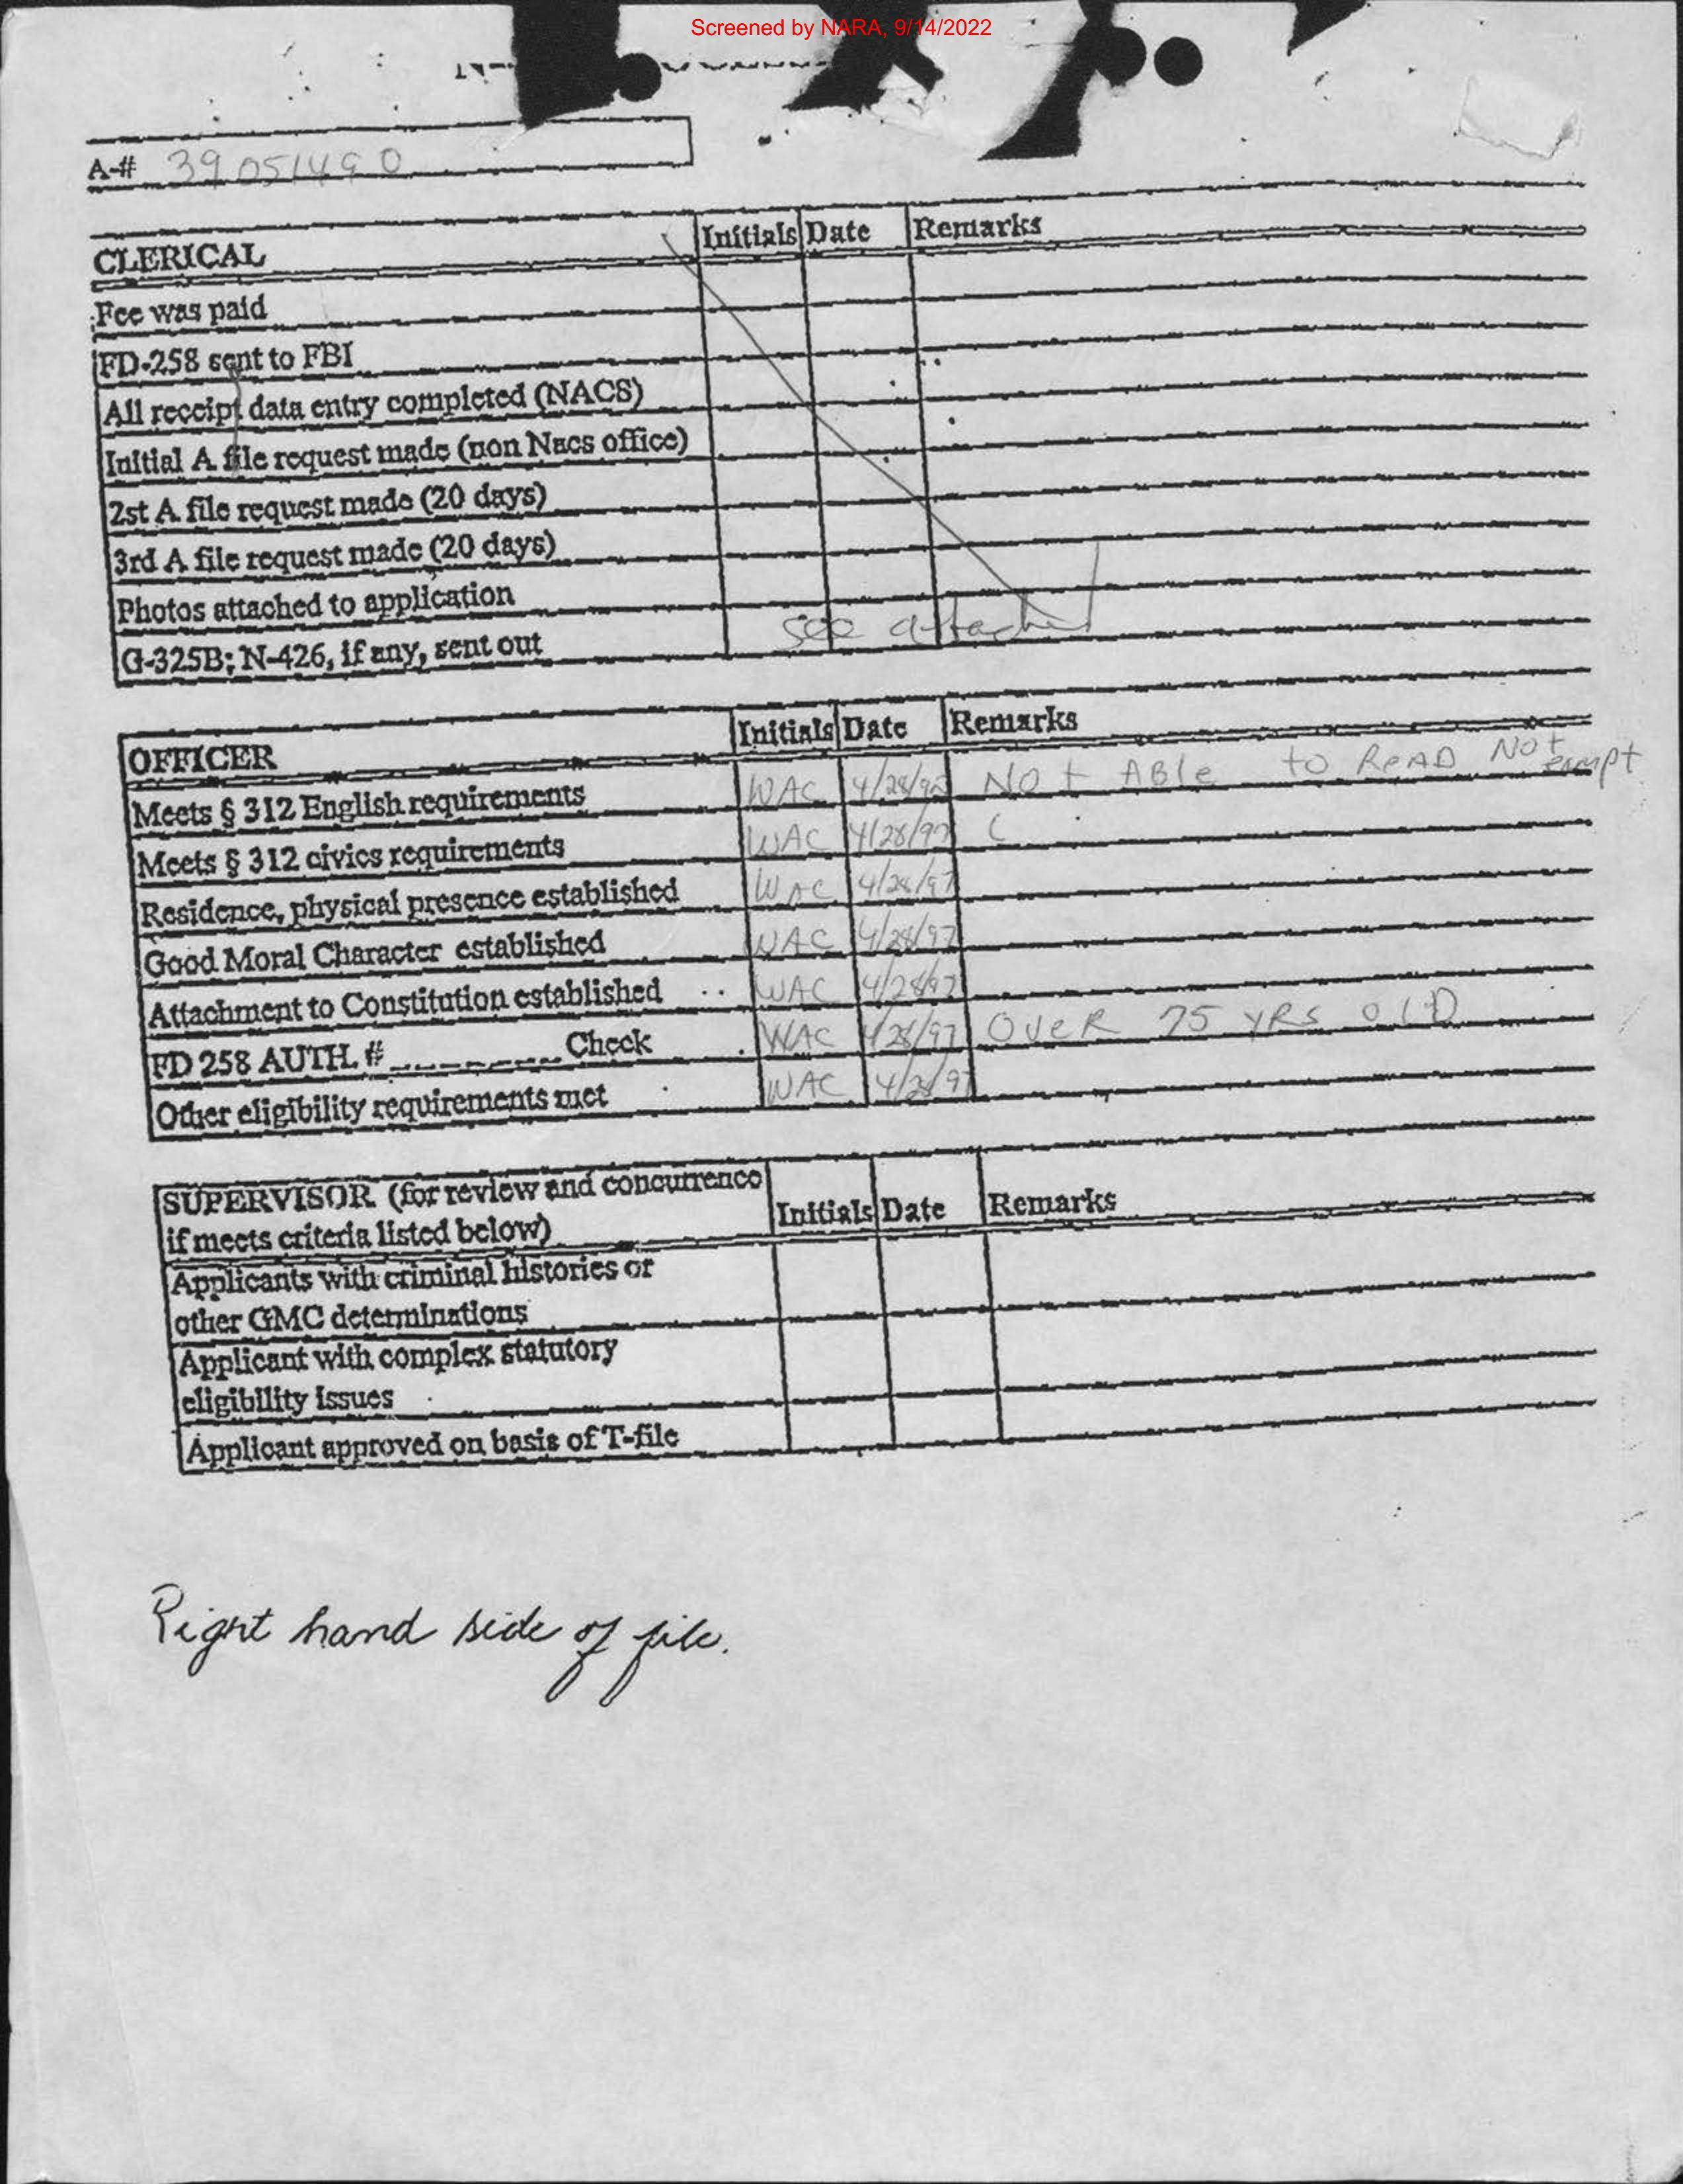 Screened by NARA, 9/14/2022
A-# 39 051490
CLERICAL Initials Date Remarks
Fee was paid
FD-258 sent to FBI
All receipt data entry completed (NACS)
Initial A file request made (non Nacs office)
2st A file request made (20 days)
3rd A file request made (20 days)
Photos attached to application
see attached
G-325B; N-426, if any, sent out
OFFICER Initials Date Remarks
Meets § 312 English requirements WAC 4/28/97 Not ABle to ReAD Not exempt
Meets § 312 civics requirements WAC 4/28/97
Residence, physical presence established WAC 4/28/97
Good Moral Character established WAC 4/28/97
Attachment to Constitution established WAC 4/28/97
FD 258 AUTH. # Check WAC 4/28/97 OVeR 75 YRS OLD
Other eligibility requirements met WAC 4/28/97
SUPERVISOR (for review and concurrence
if meets criteria listed below) Initials Date Remarks
Applicants with criminal histories or
other GMC determinations
Applicant with complex statutory
eligibility issues
Applicant approved on basis of T-file
Right hand side of file.